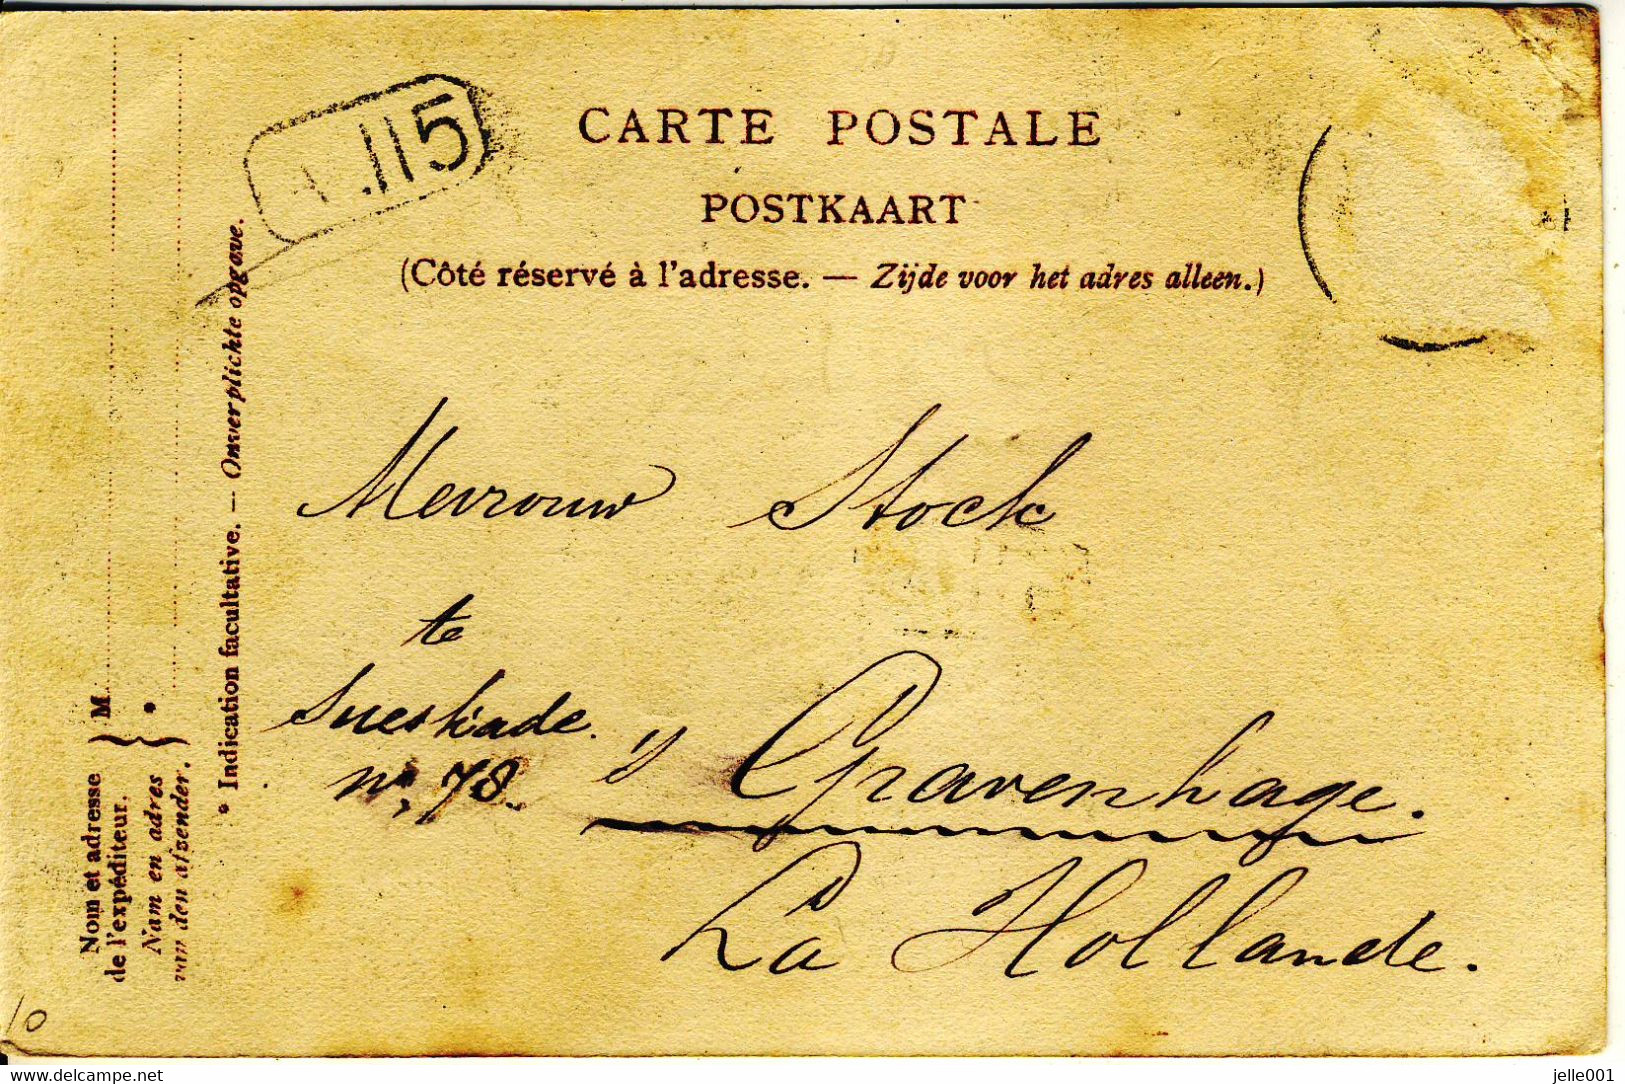 A.115
CARTE POSTALE
POSTKAART
(Côté réservé à l'adresse. — Zijde voor het adres alleen.)
Mevrouw Stock
te
Sueskade.
no. 78.
's Gravenhage.
La Hollande.
Nom et adresse
de l'expéditeur.
Nam en adres
van den afzender.
M
*
* Indication facultative. — Onverplichte opgave.
10
delcampe.net
jelle001